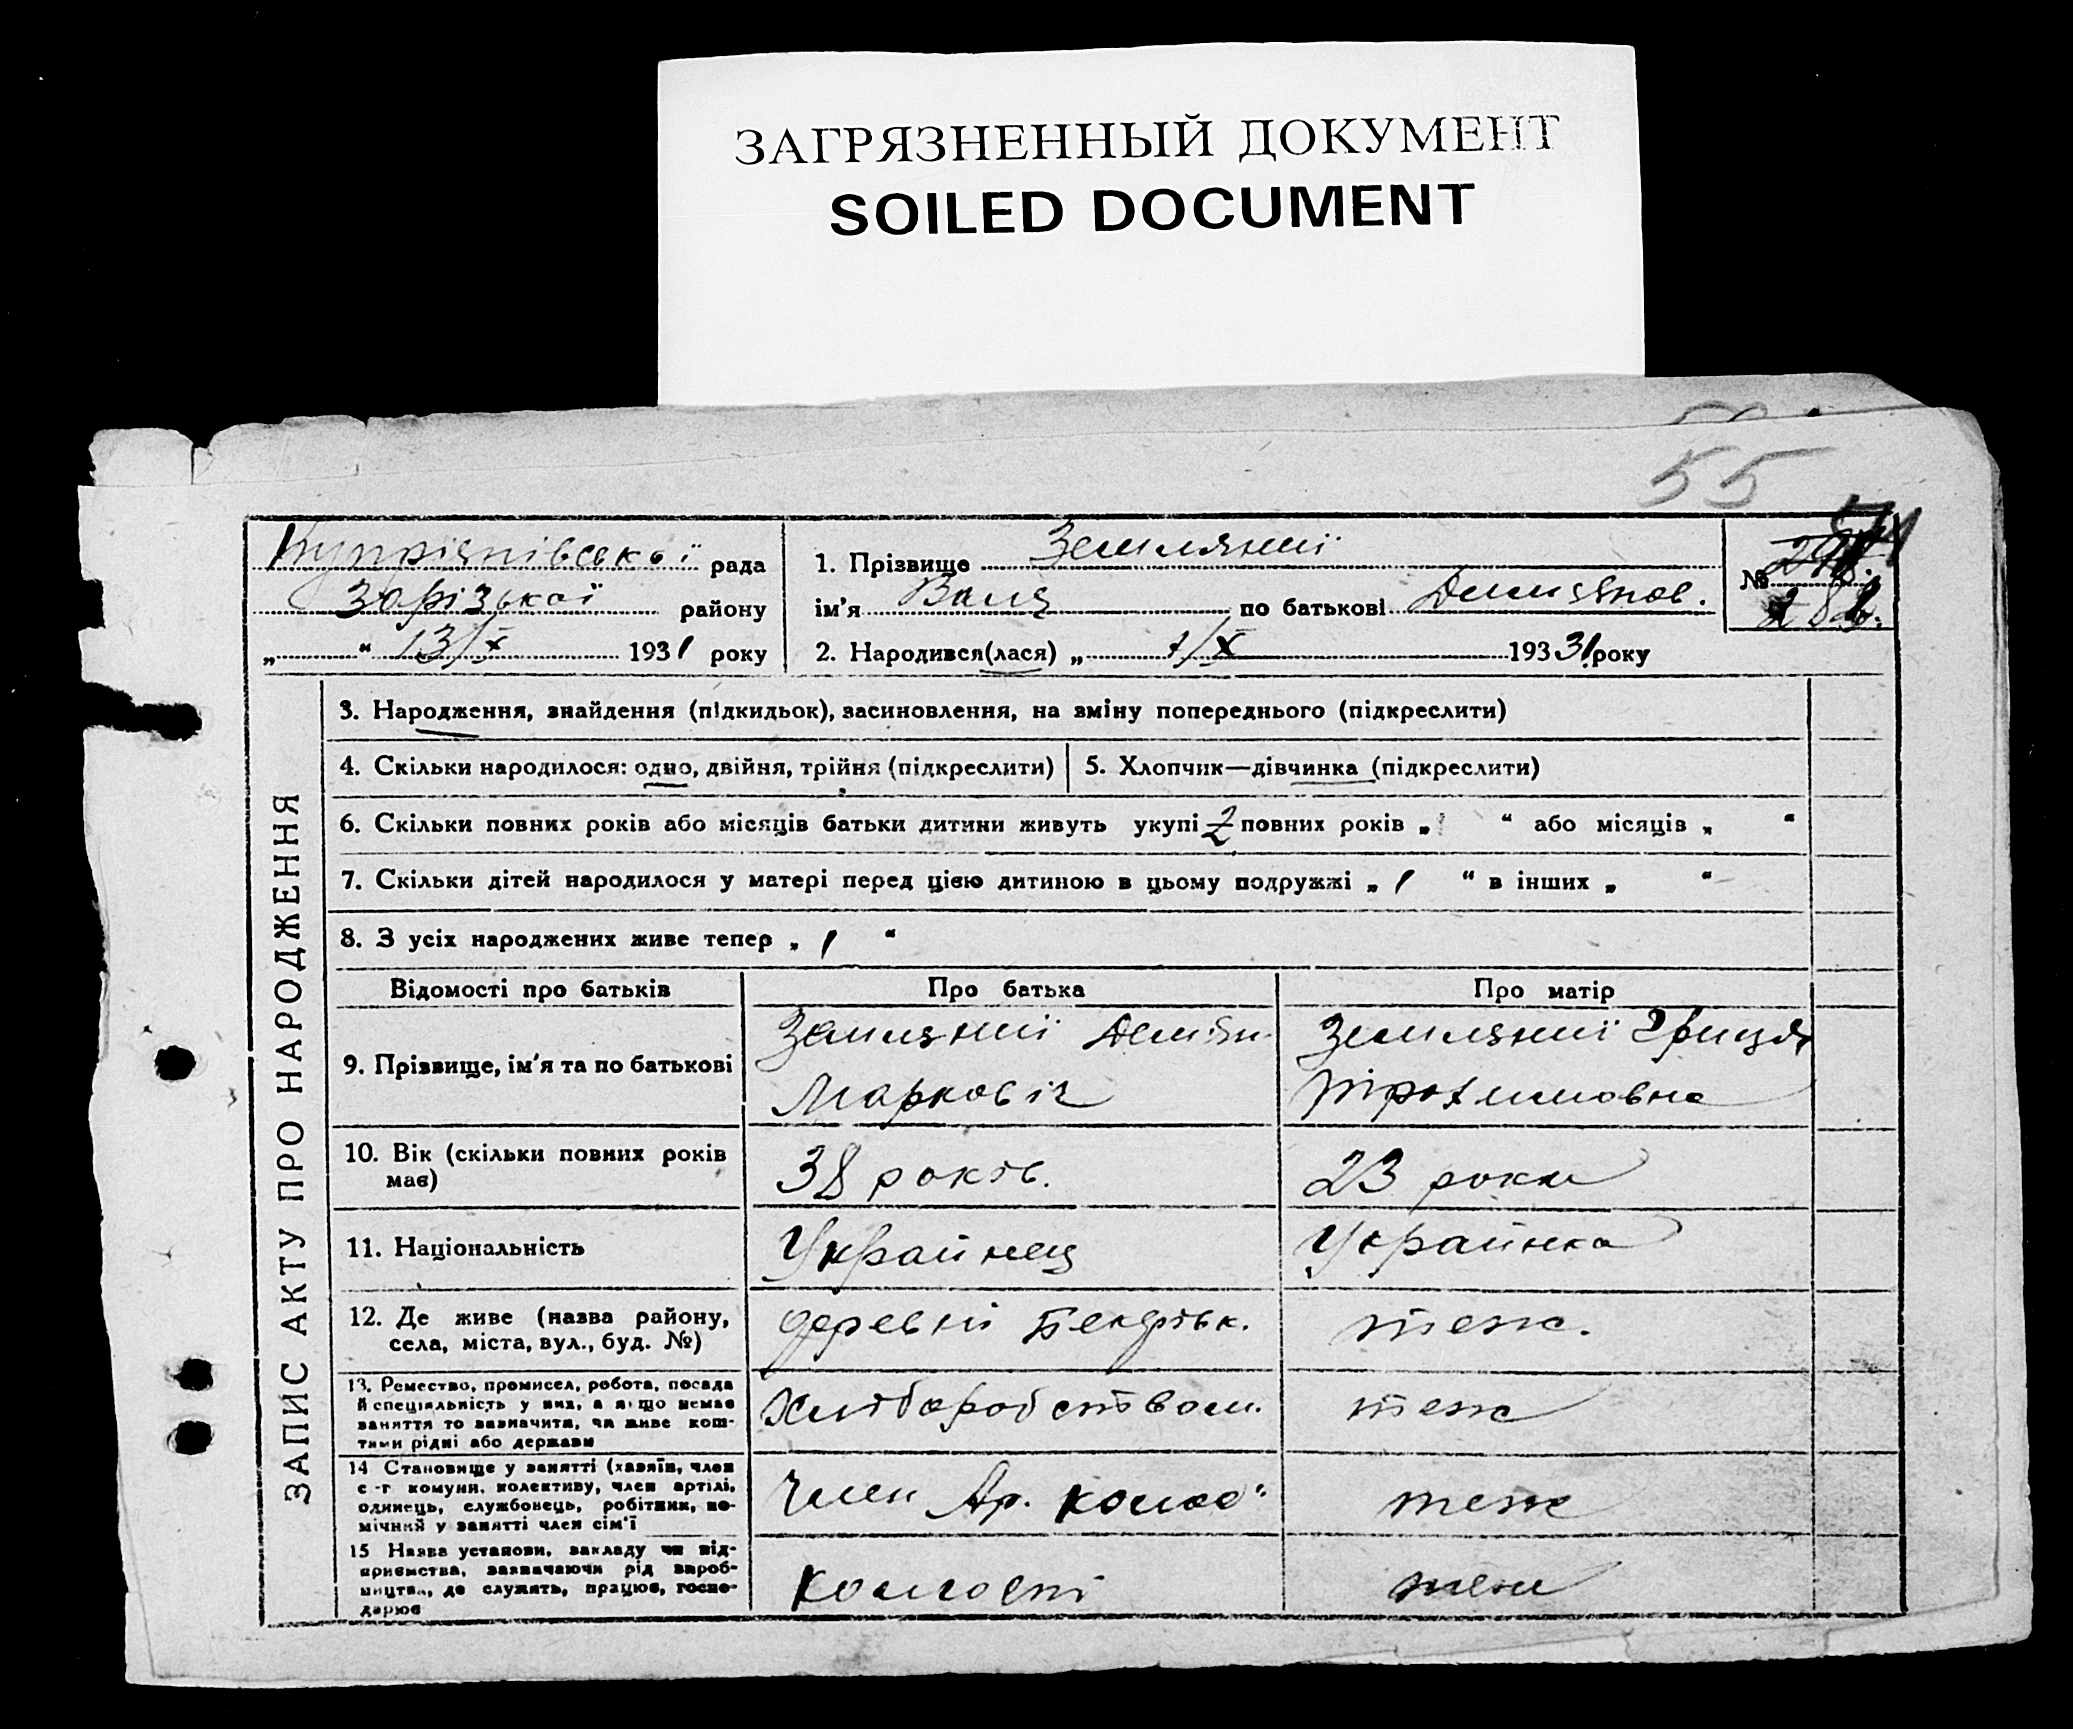 ЗАГРЯЗНЕННЫЙ ДОКУМЕНТ
SOILED DOCUMENT
55
рада
району
„ “ 13/X 1931 року
1. Прізвище Землянні
ім’я Валя по батькові
2. Народився(лася) „ 1/X 193 31 року
№
ЗАПИС АКТУ ПРО НАРОДЖЕННЯ
3. Народження, знайдення (підкидьок), засиновлення, на зміну попереднього (підкреслити)
4. Скільки народилося: одно, двійня, трійня (підкреслити)
5. Хлопчик—дівчинка (підкреслити)
6. Скільки повних років або місяців батьки дитини живуть укупі 2 повних років „ “ або місяців „ “
7. Скільки дітей народилося у матері перед цією дитиною в цьому подружжі „ 1 “ в інших „ “
8. З усіх народжених живе тепер „ 1 “
Відомості про батьків
Про батька
Про матір
9. Прізвище, ім’я та по батькові
Землянні Демян
Маркович
Землянні
10. Вік (скільки повних років
має)
38 років.
23 роки
11. Національність
Украйнец
Украйнка
12. Де живе (назва району,
села, міста, вул., буд. №)
деревні
теж.
13. Ремество, промисел, робота, посада
й спеціяльність у них, а якщо немає
заняття то зазначити, чи живе кош-
тами рідні або держави
Хліборобством.
теж
14 Становище у занятті (хазяїн, член
с.-г комуни, колективу, член артілі,
одинець, службонець, робітник, по-
мічний у занятті член сім’ї
Член Ар.
теж
15 Назва установи, закладу чи під-
приємства, зазначаючи рід вироб-
ництва, де служить, працює, госпо-
дарює
теж